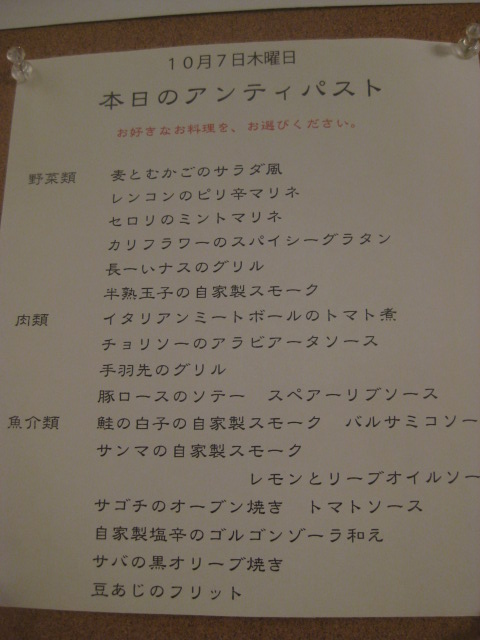 10月7日木曜日
本日のアンティパスト
お好きなお料理を、お選びください。
野菜類 麦とむかごのサラダ風
レンコンのピリ辛マリネ
セロリのミントマリネ
カリフラワーのスパイシーグラタン
長ーいナスのグリル
半熟玉子の自家製スモーク
肉類 イタリアンミートボールのトマト煮
チョリソーのアラビアータソース
手羽先のグリル
豚ロースのソテー スペアーリブソース
魚介類 鮭の白子の自家製スモーク バルサミコソー
サンマの自家製スモーク
レモンとリーブオイルソー
サゴチのオーブン焼き トマトソース
自家製塩辛のゴルゴンゾーラ和え
サバの黒オリーブ焼き
豆あじのフリット